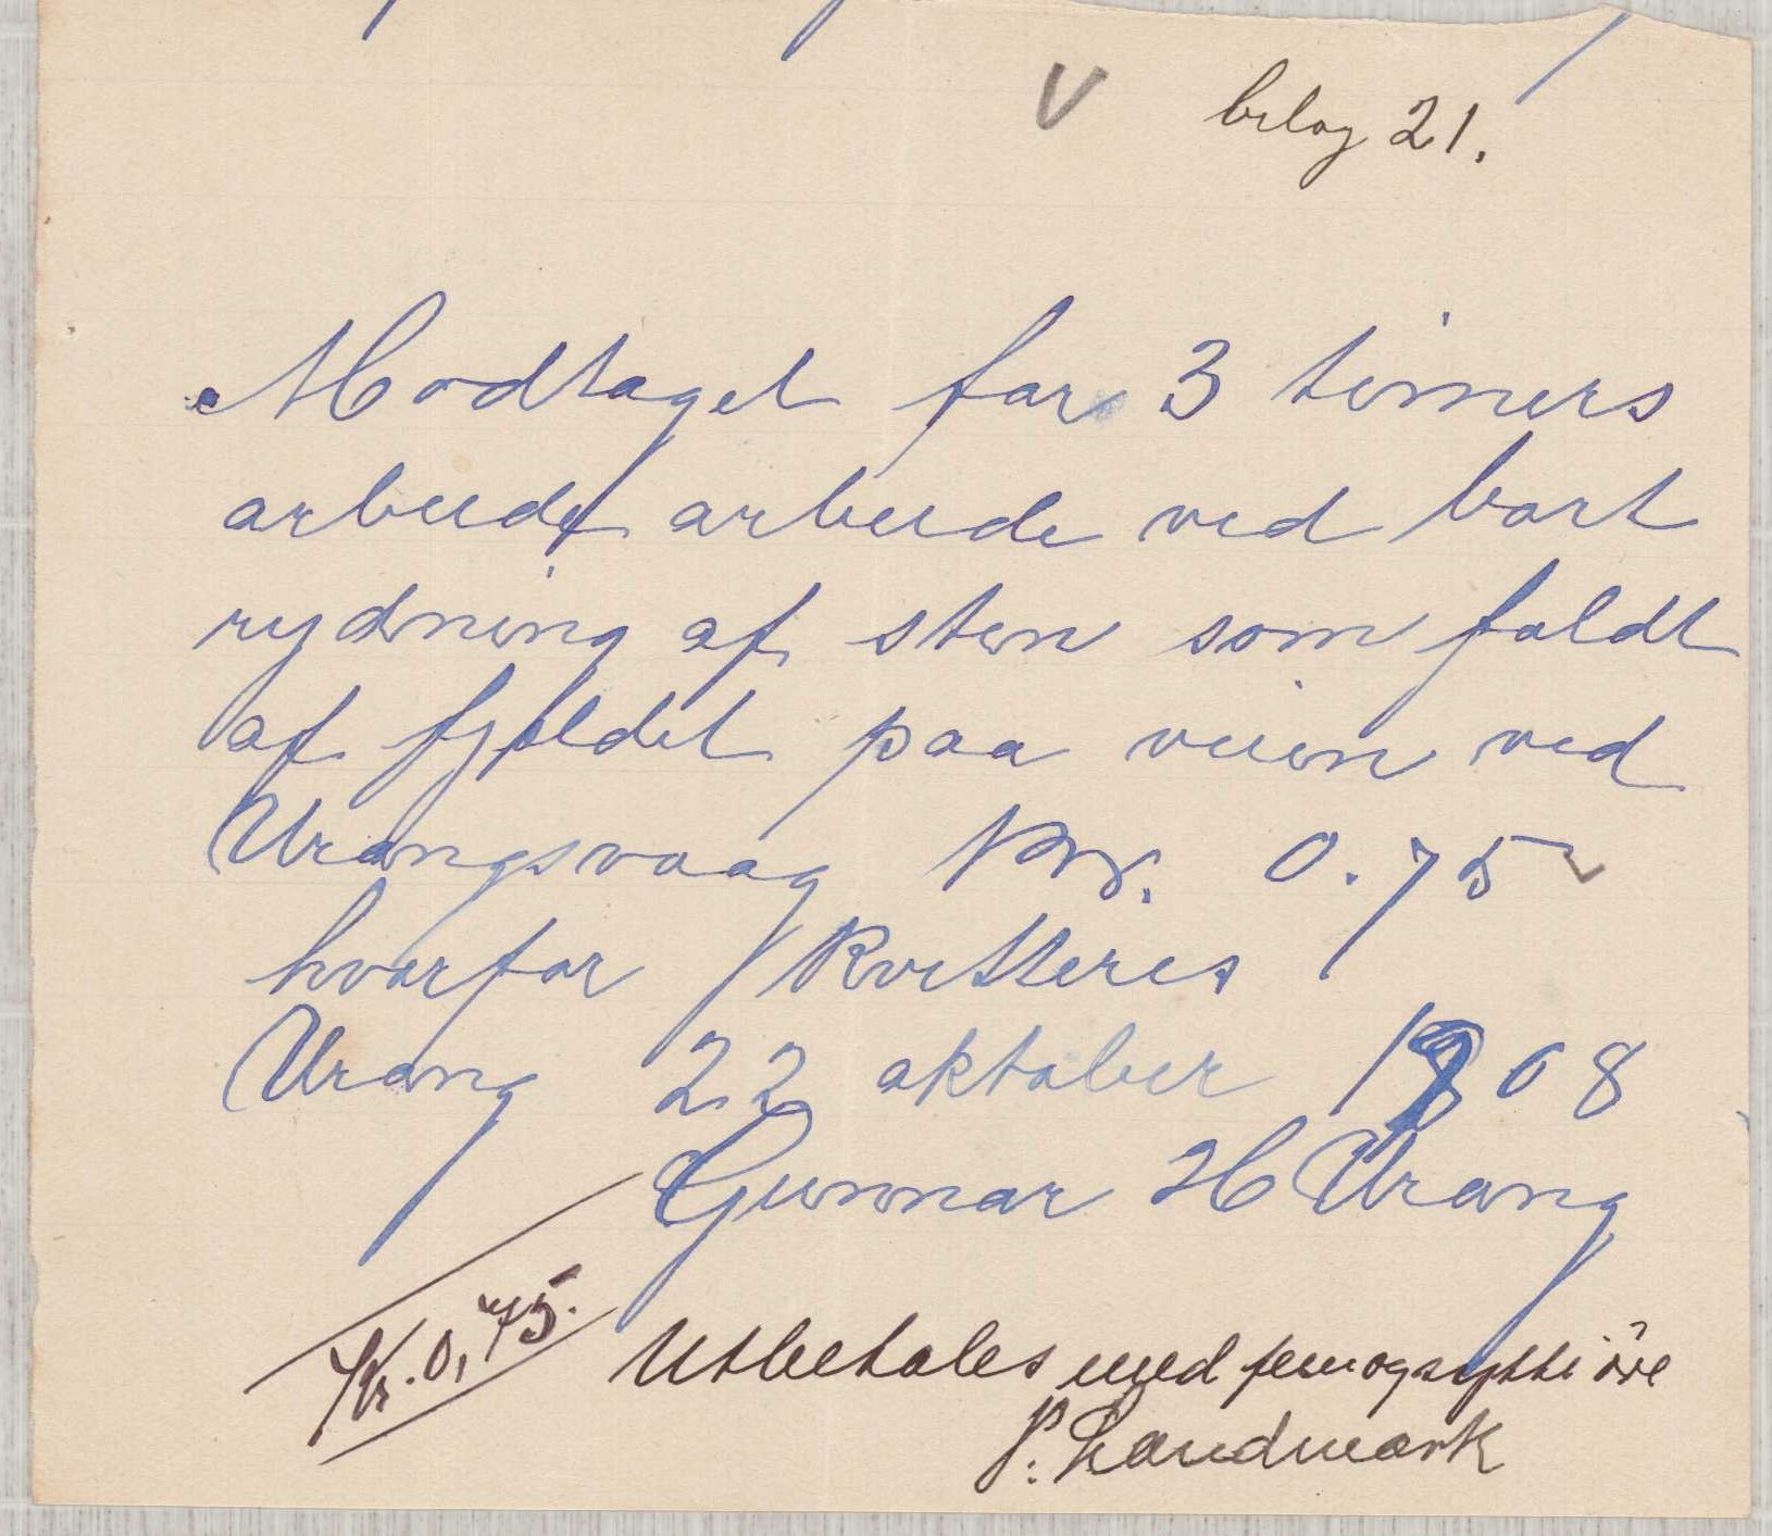 V bilag 21.
Modtaget for 3 timers
arbeide arbeide ved bort
rydning af sten som faldt
af fjeldet paa veien ved
Urangsvaag Kr. 0.75
hvorfor kvitteres
Urang 22 oktober 1908
Gunnar H Urang
Kr. 0,75.
Utbetales med femogsytti øre
P. Landmark